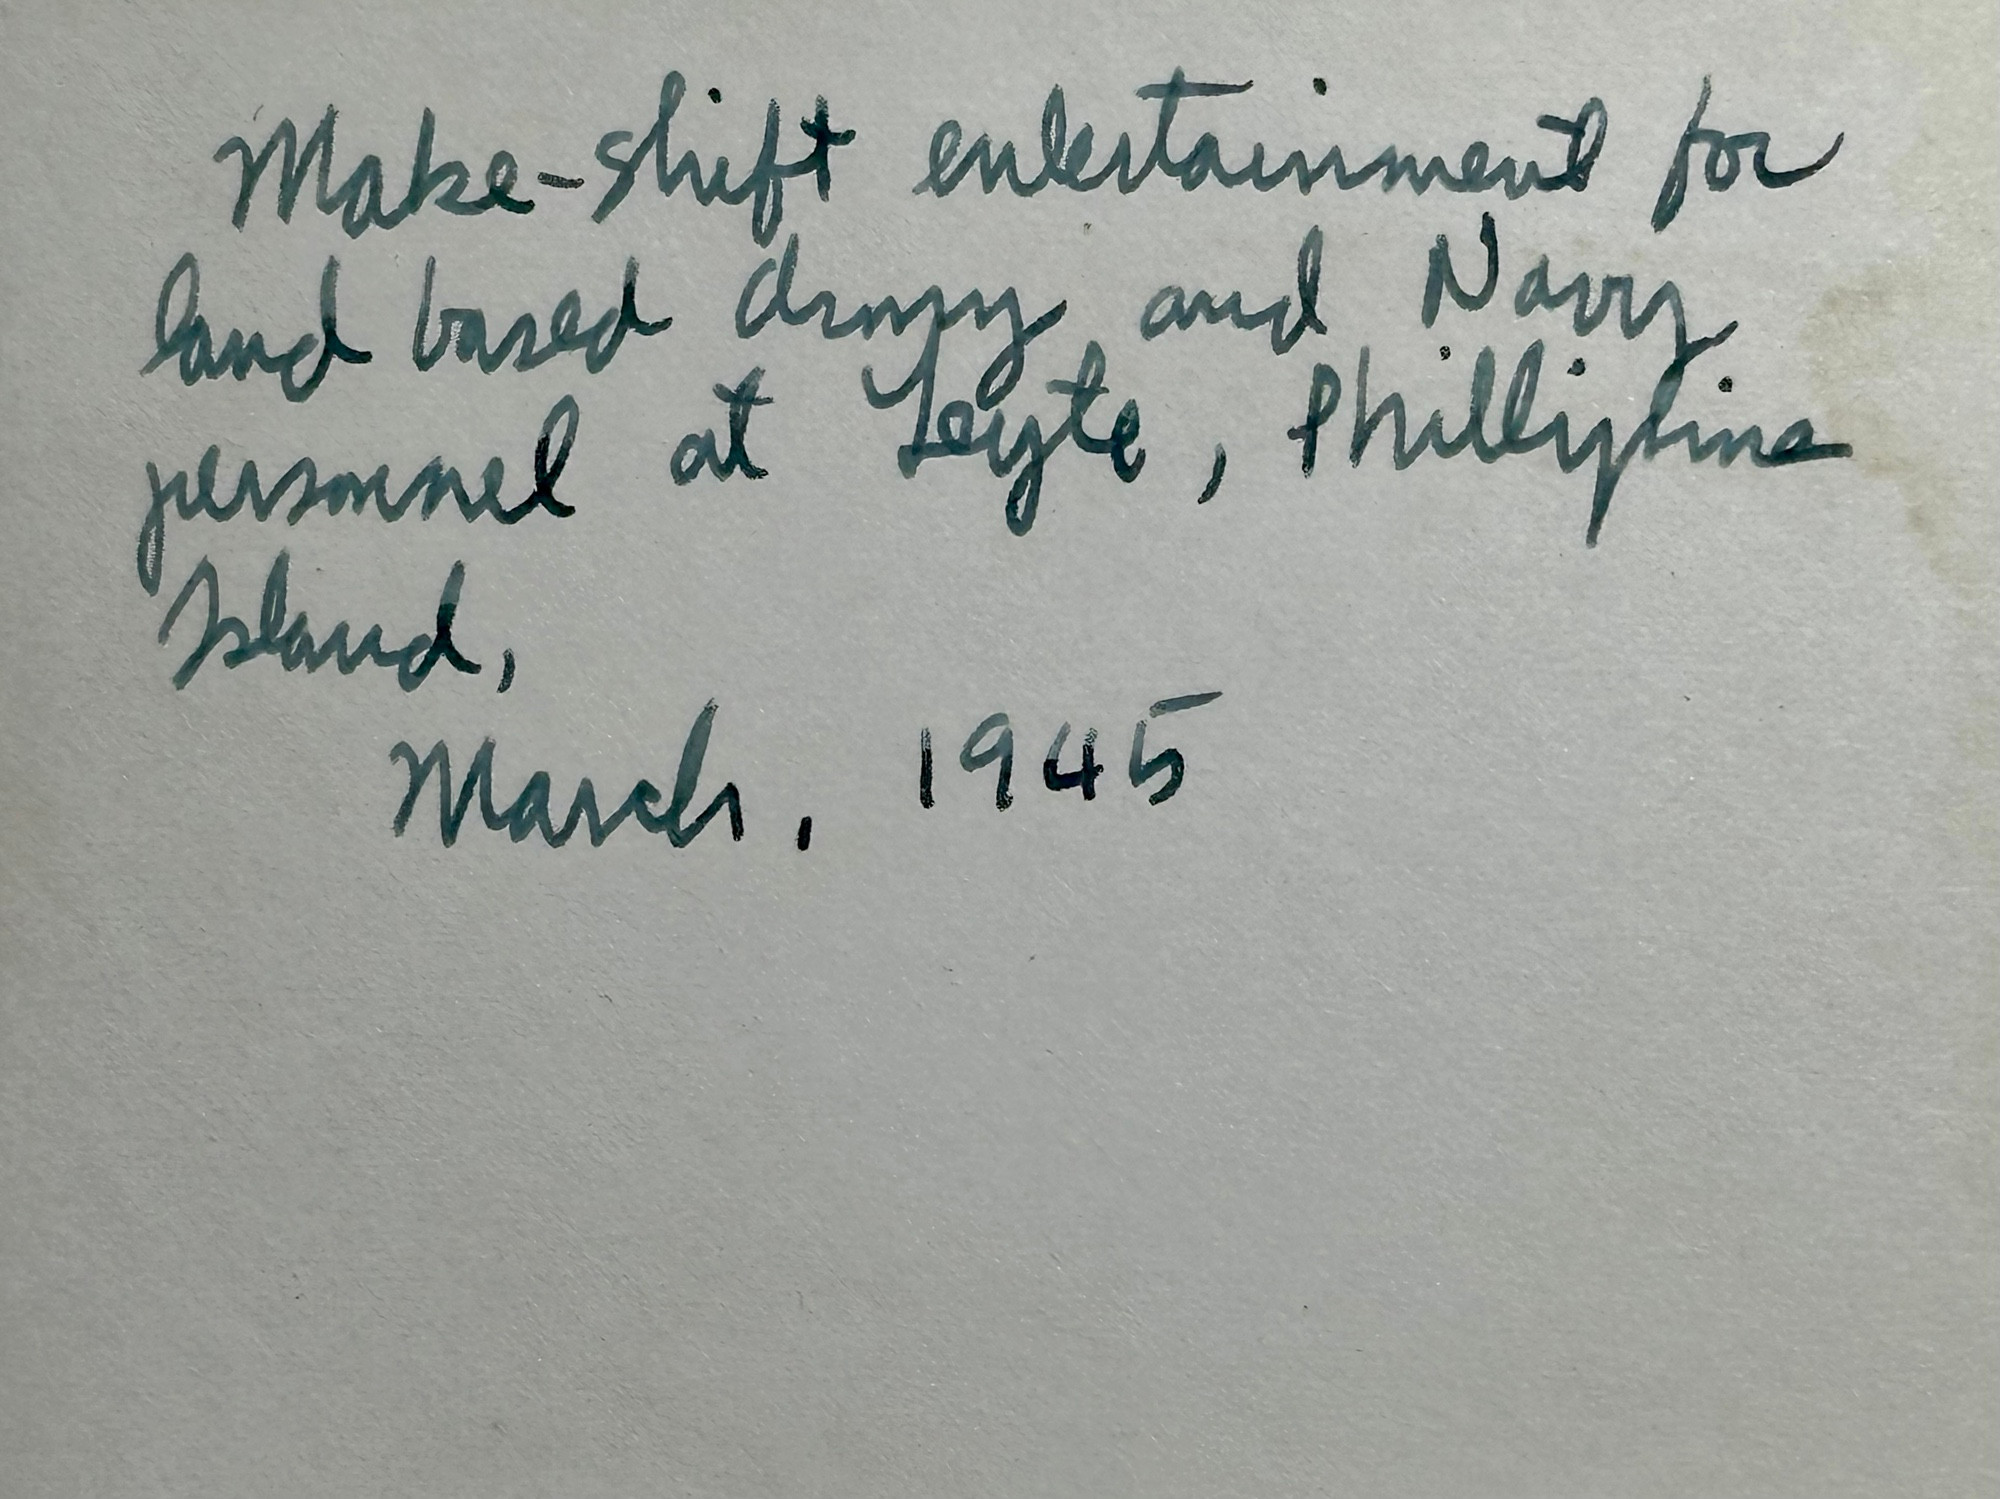 Make-shift entertainment for
land based Army and Navy
personnel at Leyte, Phillipine
Island,
March, 1945